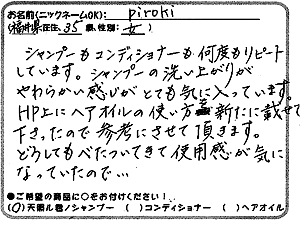 お名前(ニックネームOK): piroki
(福井県)在住、35歳、性別:女)
シャンプーもコンディショナーも何度もリピート
しています。シャンプーの洗い上がりが
やわらかい感じがとても気に入っています。
HP上にヘアオイルの使い方を新たに載せて
下さったので参考にさせて頂きます。
どうしてもべたついてきて使用感が気に
なっていたので…
●ご希望の商品に○をお付けください!
(○)天使ル君ノシャンプー ( )コンディショナー ( )ヘアオイル